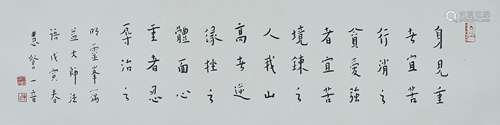 身見重
者宜苦
行消之
貪愛強
者宜苦
境鍊之
人我山
高者逆
緣挫之
體面心
重者忍
辱治之
明靈峯蕅
益大師法
語戊寅春
一音